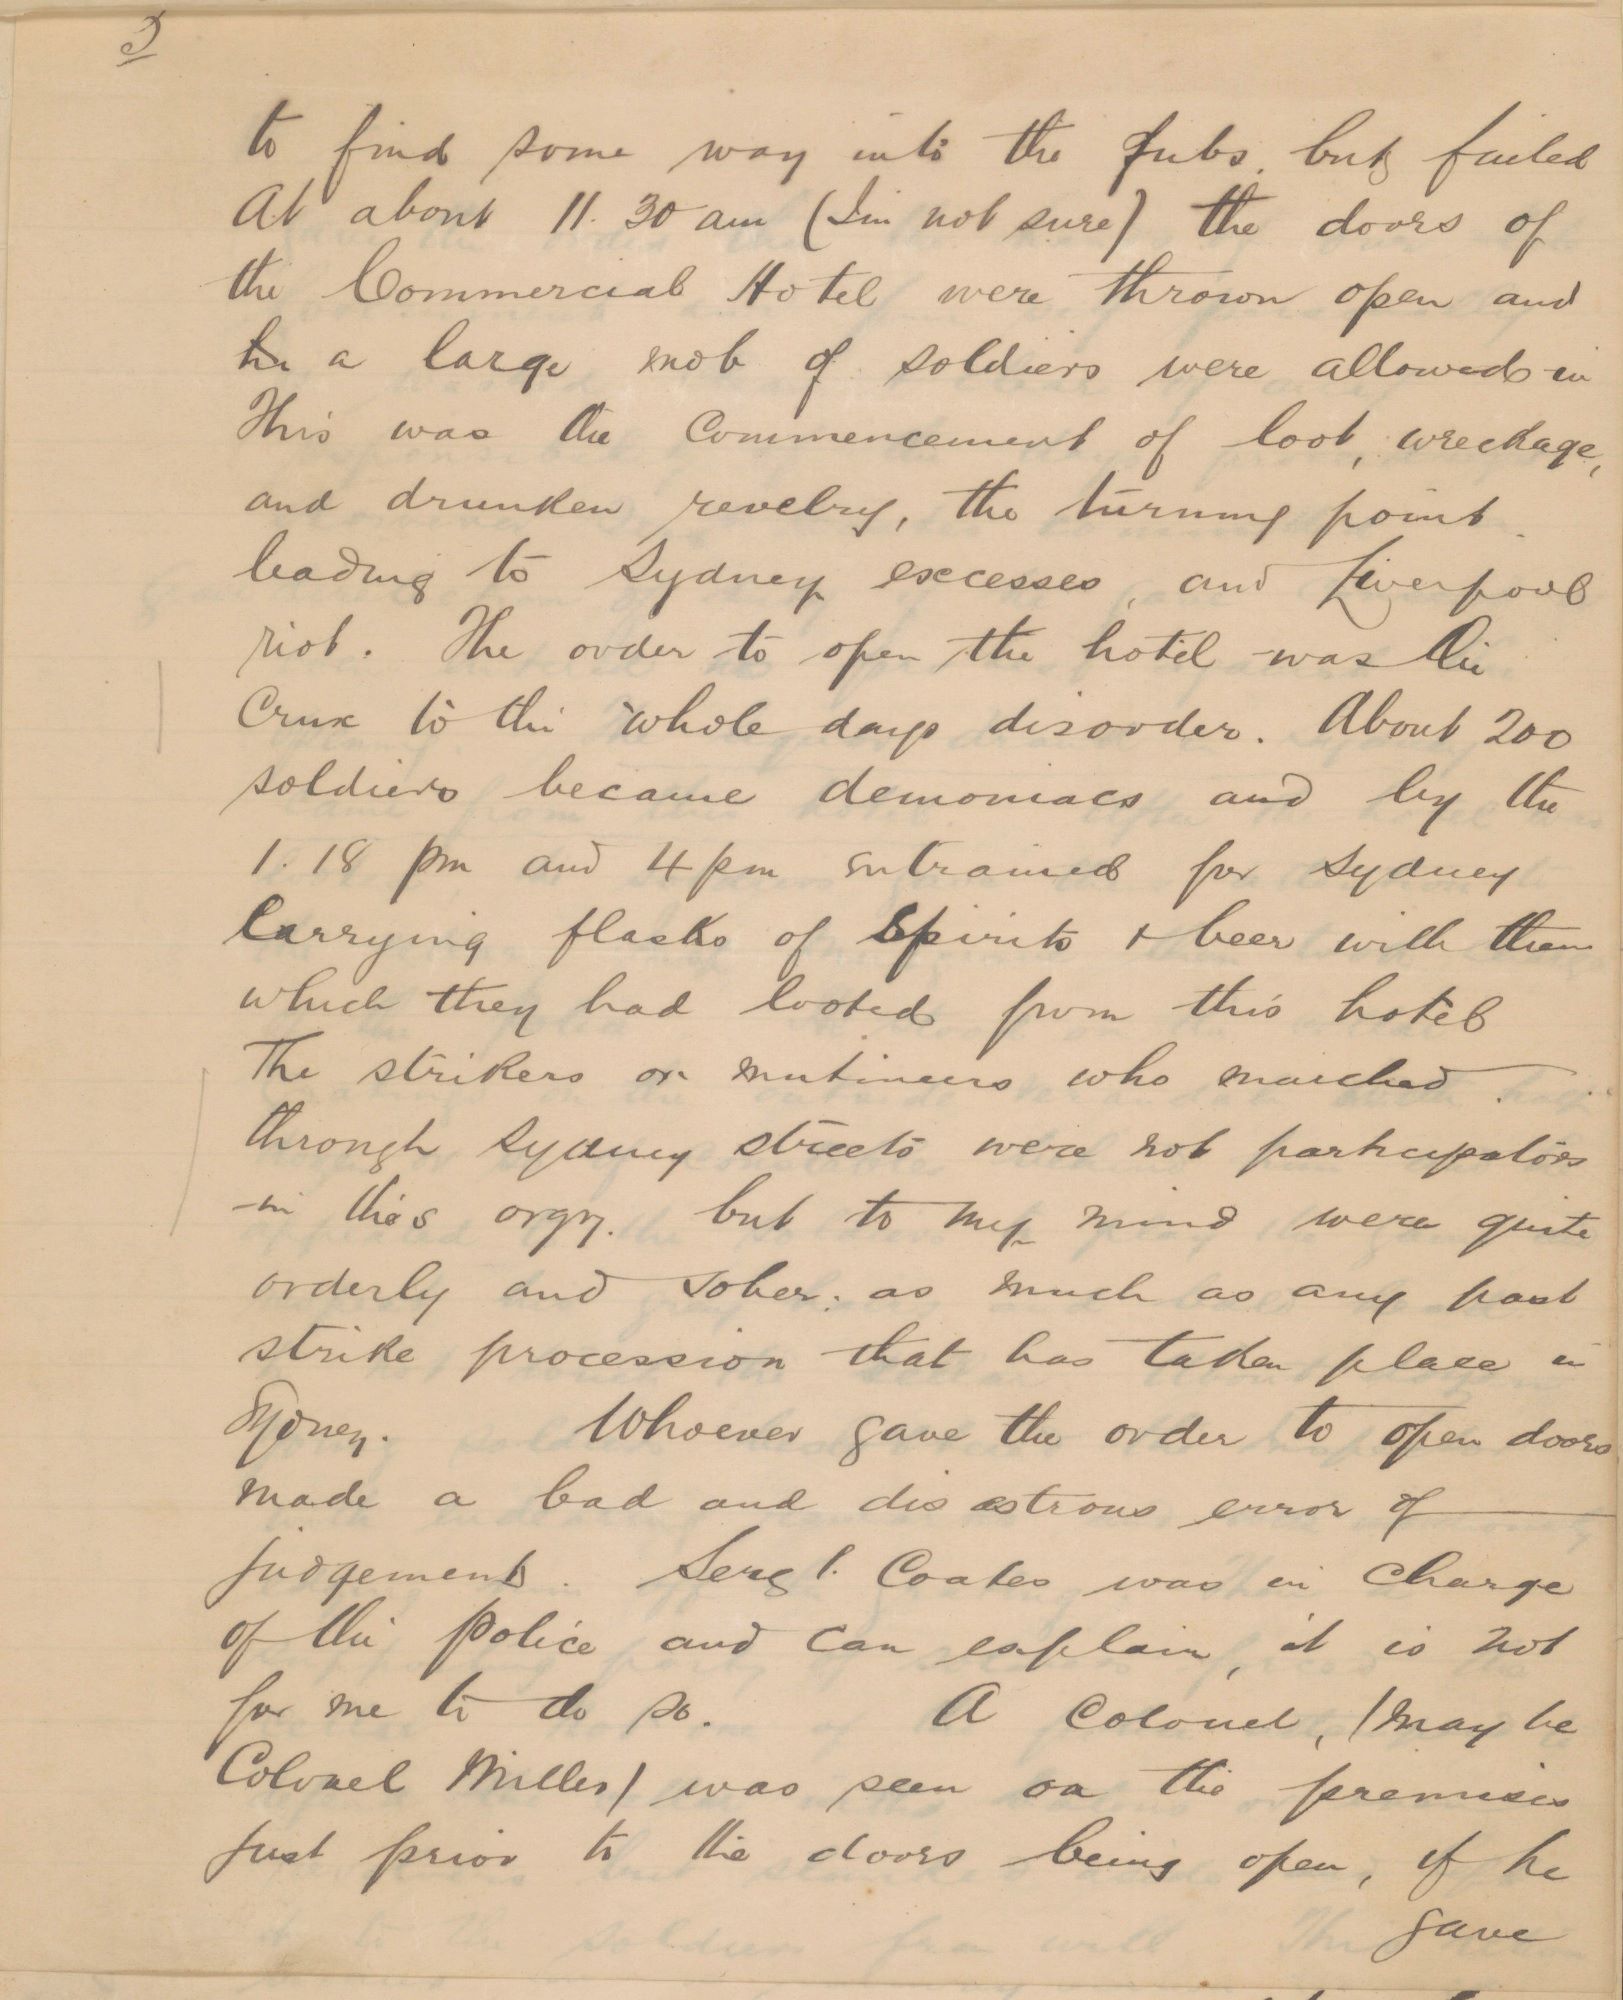 3
to find some way into the Pubs. but failed
At about 11.30 am (Im not sure) the doors of
the Commercial Hotel were thrown open and
a large mob of soldiers were allowed in
This was the Commencement of loot, wreckage,
and drunken revelry, the turning point
leading to Sydney excesses, and Liverpool
riot. The order to open the hotel was the
Crux to the whole days disorder. About 200
soldiers became demoniacs and by the
1.18 pm and 4 pm entrained for Sydney
Carrying flasks of Spirits + beer with them
which they had looted from this hotel
The strikers or mutineers who marched
through Sydney streets were not participators
in this orgy. but to my mind were quite
orderly and sober. as much as any past
strike procession that has taken place in
Sydney. Whoever gave the order to open doors
made a bad and disastrous error of
judgement. Sergt. Coates was in charge
of the Police and can explain, it is not
for me to do so. A Colonel, (may be
Colonel Miller) was seen on the premises
just prior to the doors being open, if he
gave